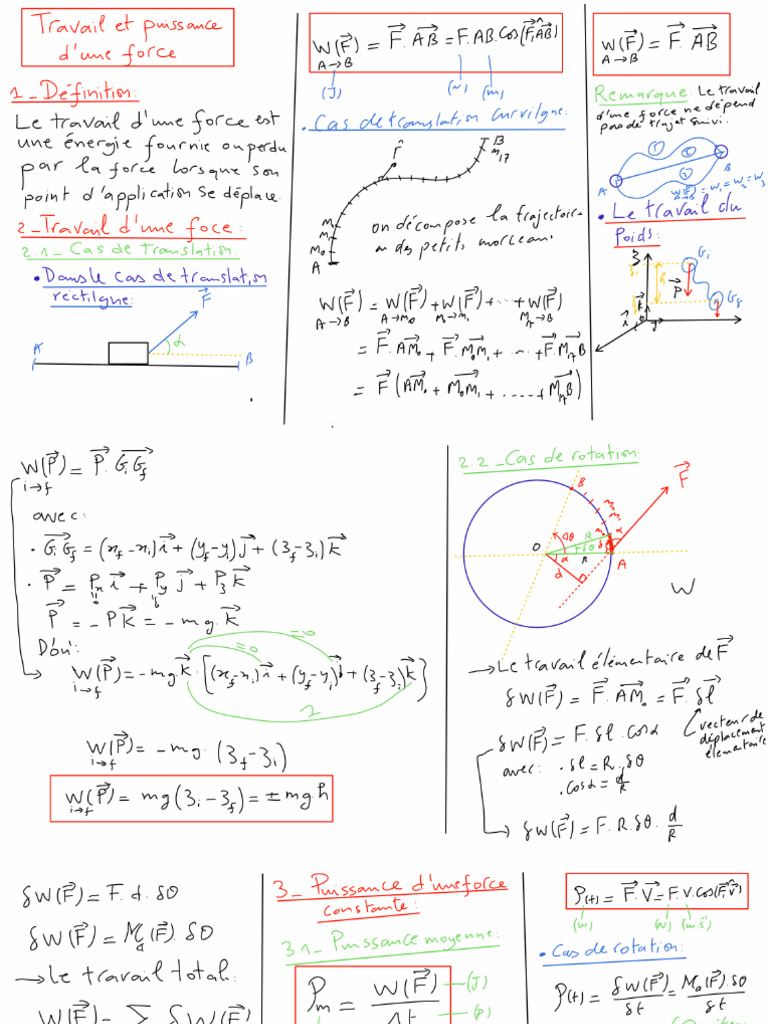 Travail et puissance
d'une force
1_Définition:
Le travail d'une force est
une énergie fournie ou perdu
par la force lorsque son
point d'application se déplace.
2_Travail d'une foce:
2.1_Cas de translation:
• Dans le cas de translation
rectilgne:
F⃗
α
A B
W(F⃗) = F⃗.AB⃗ = F.AB.Cos(F⃗,AB⃗)
A→B
(J) (N) (m)
• Cas de translation curvilgne:
B
M₁
M₀
A
on décompose la trajectoire
en des petits morceau.
W(F⃗) = W(F⃗) + W(F⃗) + ... + W(F⃗)
A→B A→M₀ M₀→M₁
= F⃗.AM₀⃗ + F⃗.M₀M₁⃗ + ... + F⃗.MₙB⃗
= F⃗(AM₀⃗ + M₀M₁⃗ + ..... + MₙB⃗)
W(F⃗) = F⃗.AB⃗
A→B
Remarque: Le travail
d'une force ne dépend
pas de trajet suivi.
1
2
3
A B
W(F⃗) = W₁ = W₂ = W₃
A→B
• Le travail du
Poids:
Gi
h
P⃗
Gf
W(P⃗) = P⃗.GiGf⃗
i→f
avec:
• GiGf⃗ = (xf-xi)i⃗ + (yf-yi)j⃗ + (zf-zi)k⃗
• P⃗ = Px i⃗ + Py j⃗ + Pz k⃗
P⃗ = -P k⃗ = -mg.k⃗
D'où:
=0
=0
W(P⃗) = -mg.k⃗.[(xf-xi)i⃗ + (yf-yi)j⃗ + (zf-zi)k⃗]
i→f
1
W(P⃗) = -mg.(zf-zi)
i→f
W(P⃗) = mg(zi-zf) = ±mg.h
i→f
2.2_Cas de rotation:
B
F⃗
Δθ
R
δθ
O
α
R
A
d
W
→ Le travail élémentaire de F⃗
δW(F⃗) = F⃗.AM₀⃗ = F⃗.δl⃗
vecteur de
déplacement
élementaire
δW(F⃗) = F.δl.cosα
avec: • δl = R.δθ
• cosα = d/R
→ δW(F⃗) = F.R.δθ.d/R
δW(F⃗) = F.d.δθ
δW(F⃗) = M(F⃗).δθ
→ Le travail total:
W(F⃗) = Σ δW(F⃗)
3_Puissance d'une force
constante:
3.1_Puissance moyenne:
Pm = W(F⃗)/Δt
(J)
P(t) = F⃗.V⃗ = F.V.Cos(F⃗,V⃗)
(W) (N) (m.s⁻¹)
• Cas de rotation:
P(t) = δW(F⃗)/δt = M₀(F⃗).δθ/δt